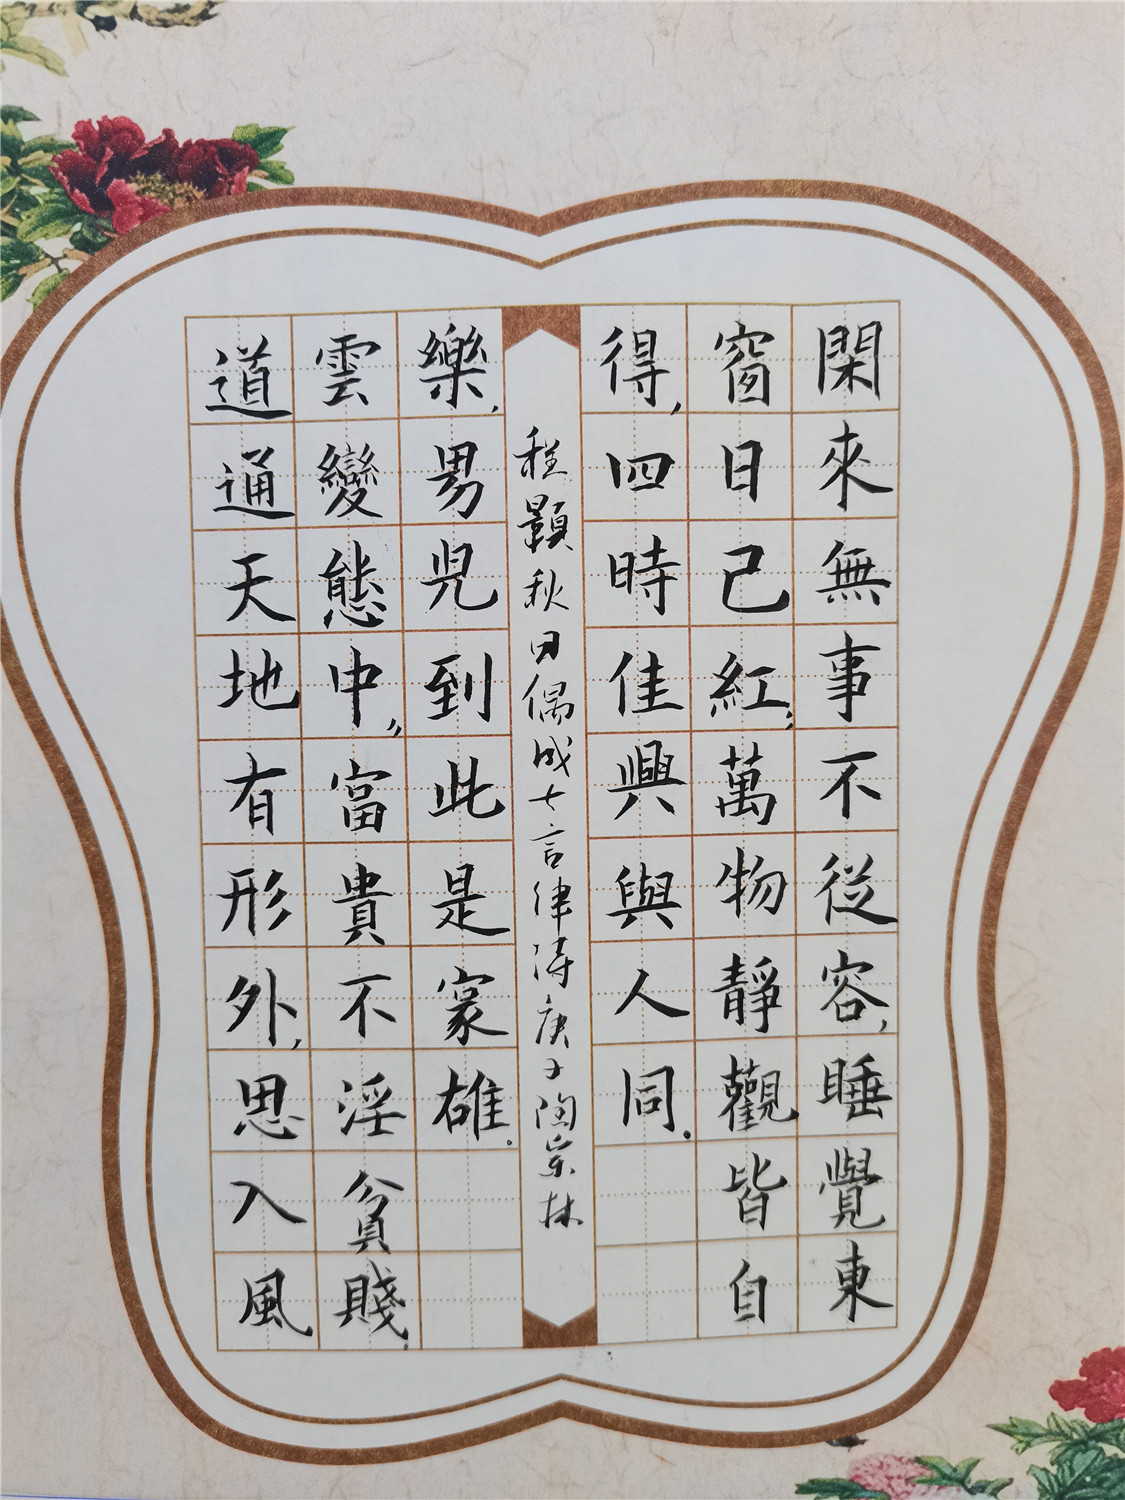 閑來無事不從容,睡覺東
窗日已紅;萬物靜觀皆自
得,四時佳興與人同.
道通天地有形外,思入風
雲變態中,富貴不淫貧賤
樂,男兒到此是豪雄。
程顥秋日偶成七言律詩庚子陶宗林